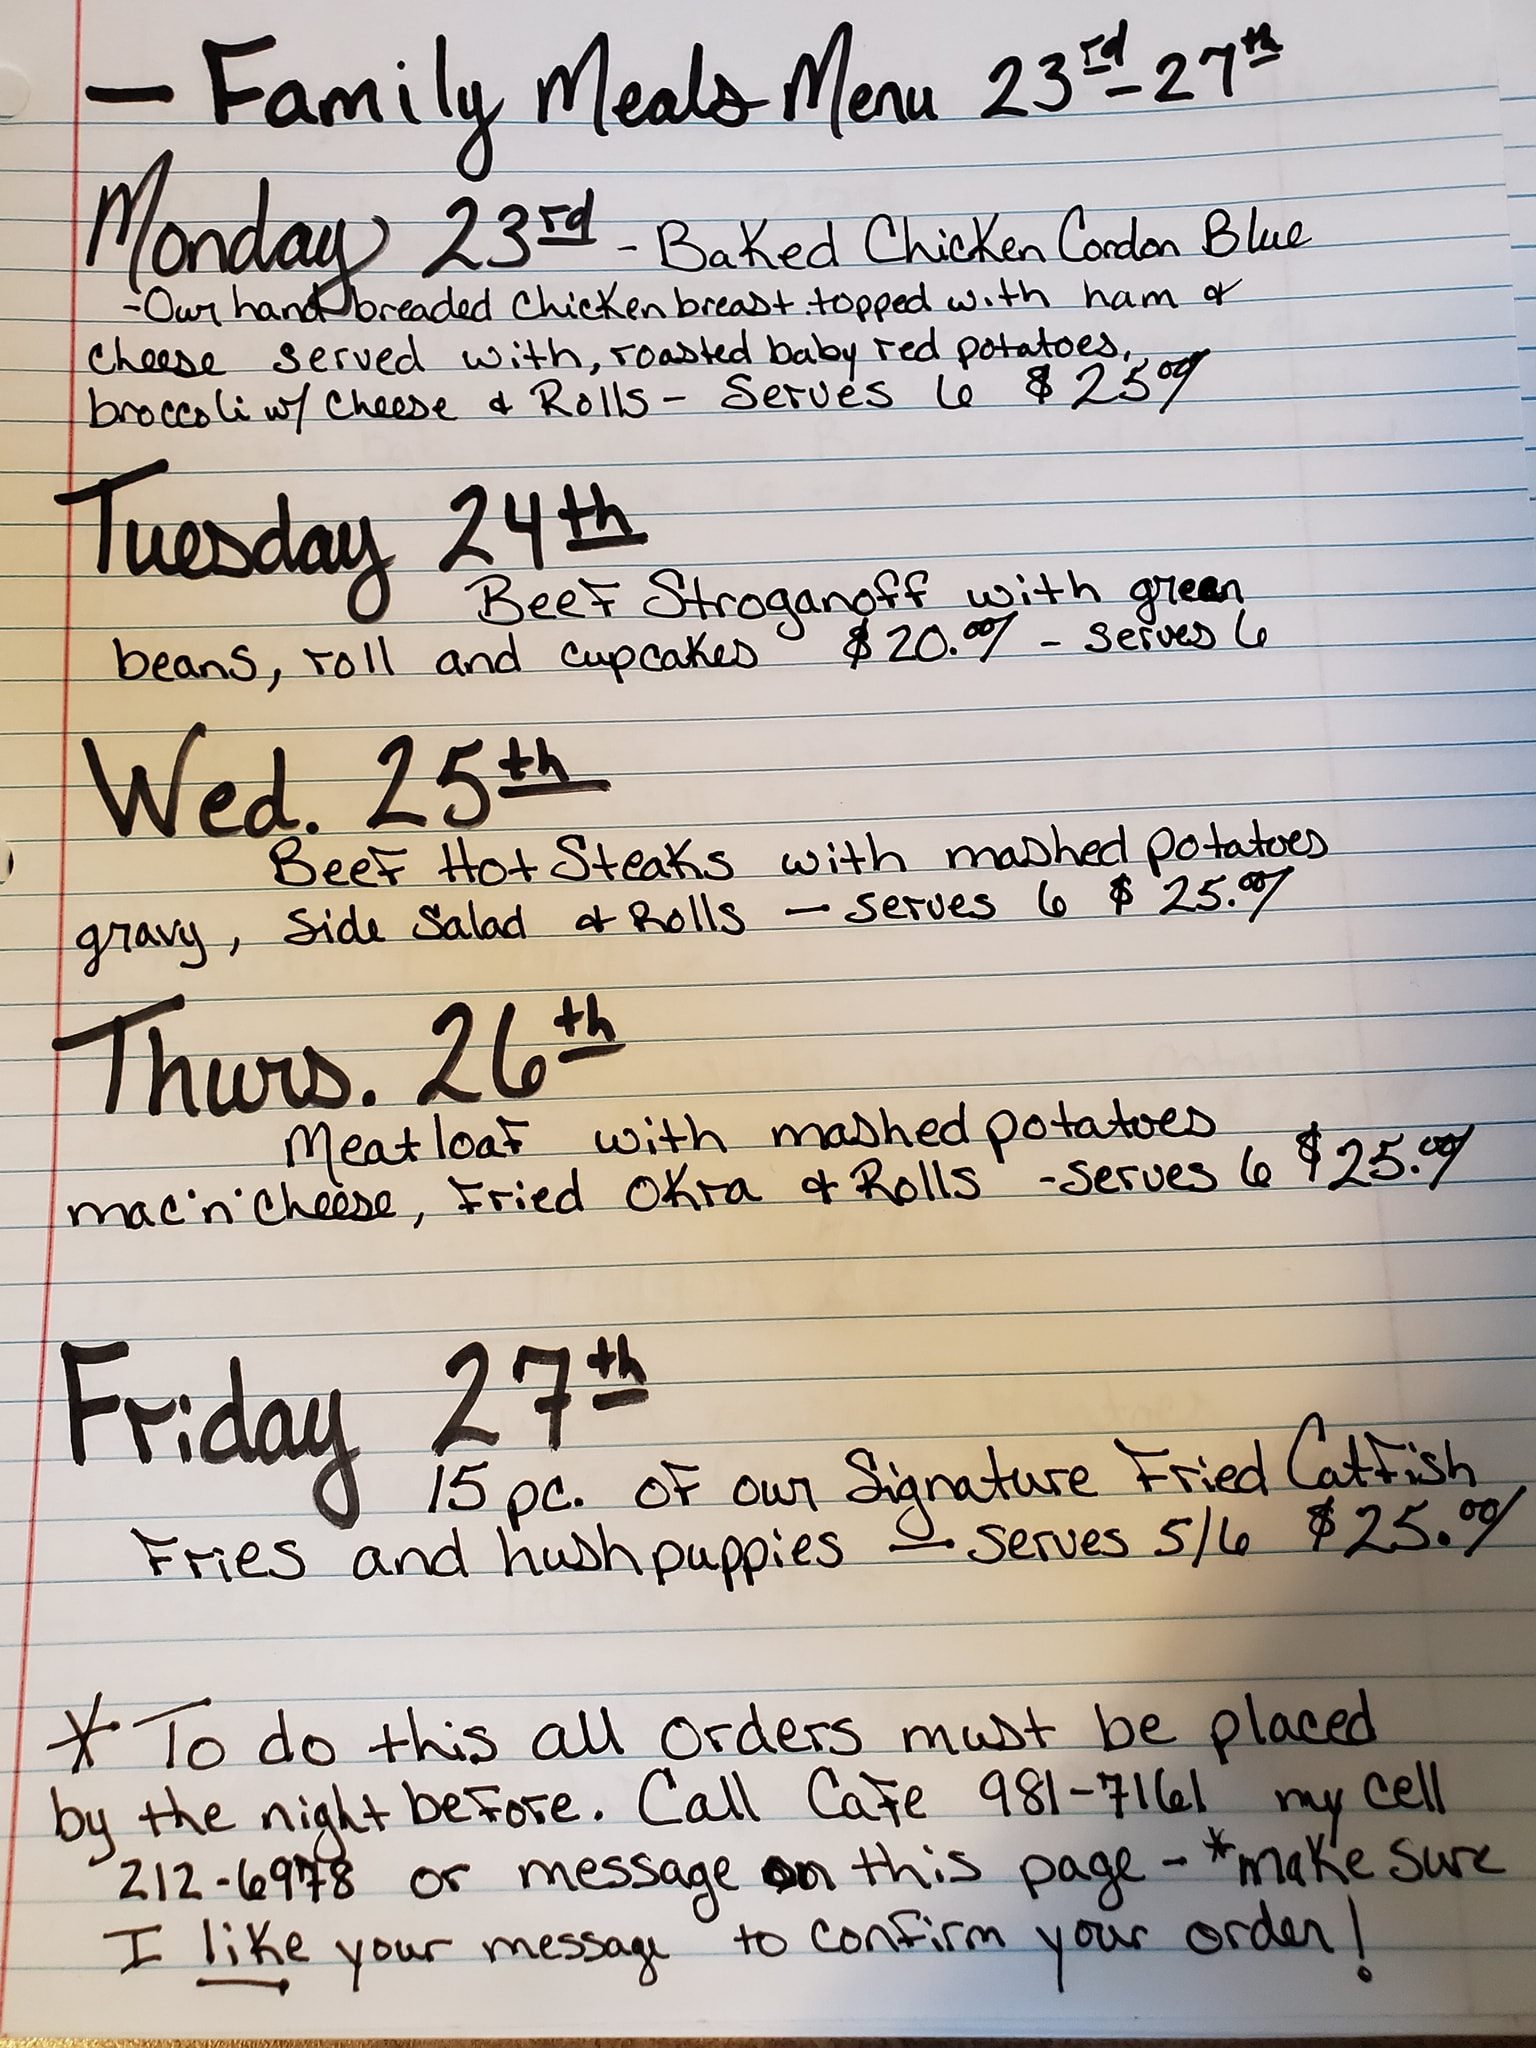 - Family Meals Menu 23rd-27th
Monday 23rd - Baked Chicken Cordon Blue
- Our hand breaded chicken breast topped with ham &
cheese served with, roasted baby red potatoes,
broccoli w/ cheese & Rolls - Serves 6 $25.00
Tuesday 24th
Beef Stroganoff with green
beans, roll and cupcakes $20.00 - serves 6
Wed. 25th
Beef Hot Steaks with mashed potatoes
gravy, side salad & Rolls - serves 6 $25.00
Thurs. 26th
Meatloaf with mashed potatoes
mac'n'cheese, Fried Okra & Rolls - serves 6 $25.00
Friday 27th
15 pc. of our Signature Fried CatFish
Fries and hushpuppies - serves 5/6 $25.00
* To do this all orders must be placed
by the night before. Call Cafe 981-7161 my cell
212-6978 or message on this page - *make sure
I like your message to confirm your order!